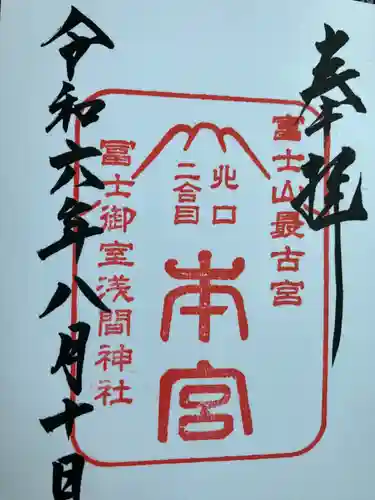 奉拝
冨士山最古宮
北口
二合目
本宮
冨士御室浅間神社
令和六年八月十日